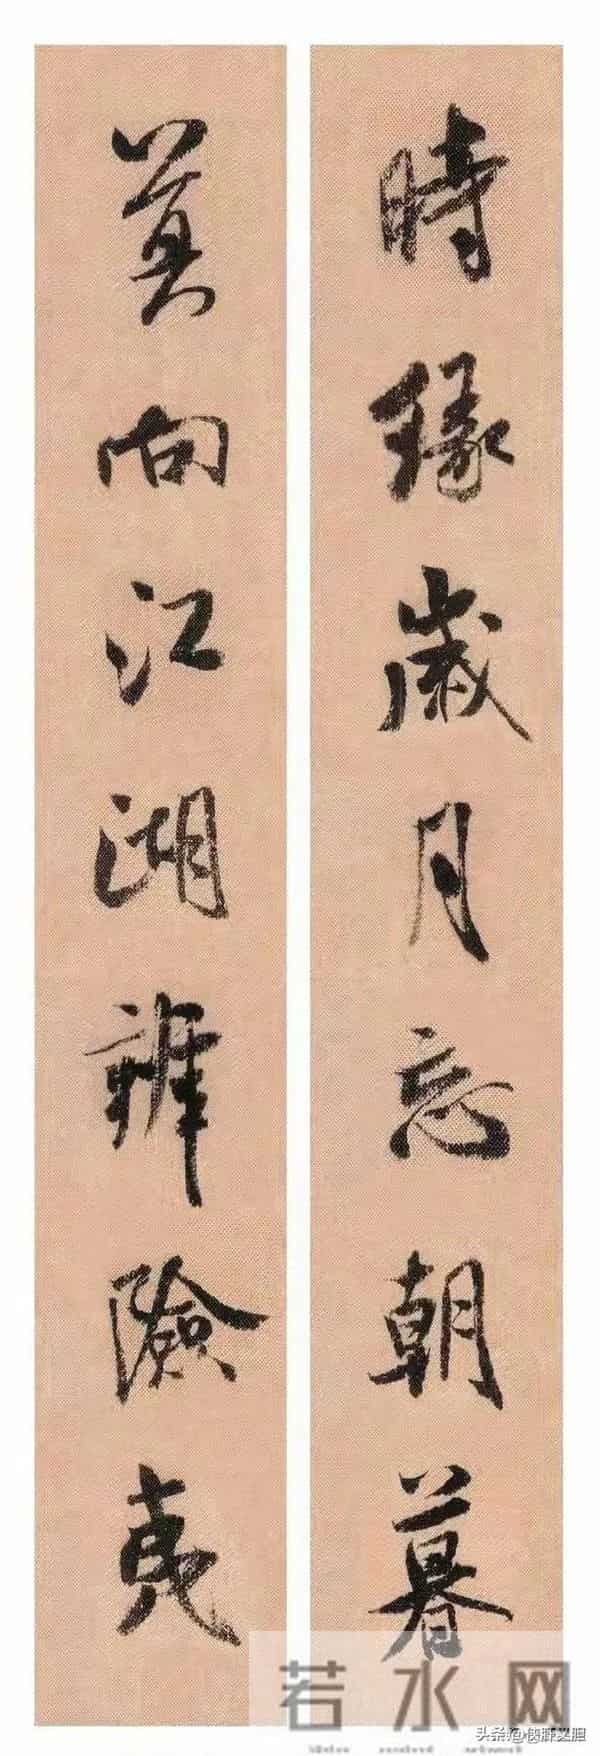 時緣歲月忘朝暮
莫向江湖辨險夷
若水网
头条@侠胖文胆